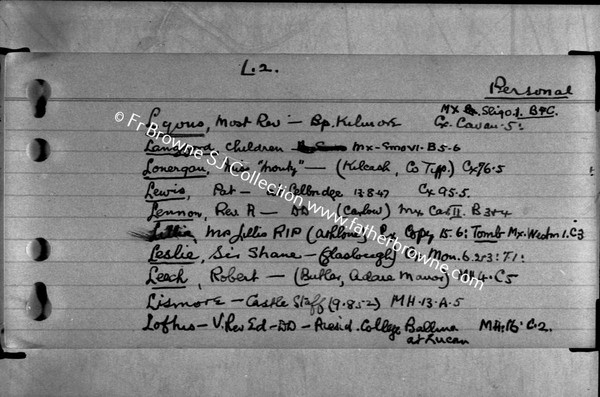 L.2.
Personal
Mx Sligo.1. B&C.
Lyons, Most Rev - Bp. Kilmore Cx. Cavan.5:
Langford, children Mx-Smov1. B5-6
Lonergan, Miss "Monty" - (Kilcash, Co Tipp.) Cx76.5
Lewis, Pat - Celbridge 13.8.47 Cx 95.5.
Lennon, Rev. R - DD - (Carlow) Mx Car II. B3+4
Lillis, Mrs Lillis RIP (Athlone) Cx Copy 15.6: Tomb Mx.Westm 1.C3
Leslie, Sir Shane - (Glaslough) Mon.6.2&3: T1:
Leech, Robert - (Butler, Adare Manor) MH4.C5
Lismore - Castle Staff (9.8.52) MH.13.A.5
Loftus - V.Rev Ed - DD - Presid. College Ballina MH.16.C.2.
at Lucan
© Fr Browne SJ Collection www.fatherbrowne.com